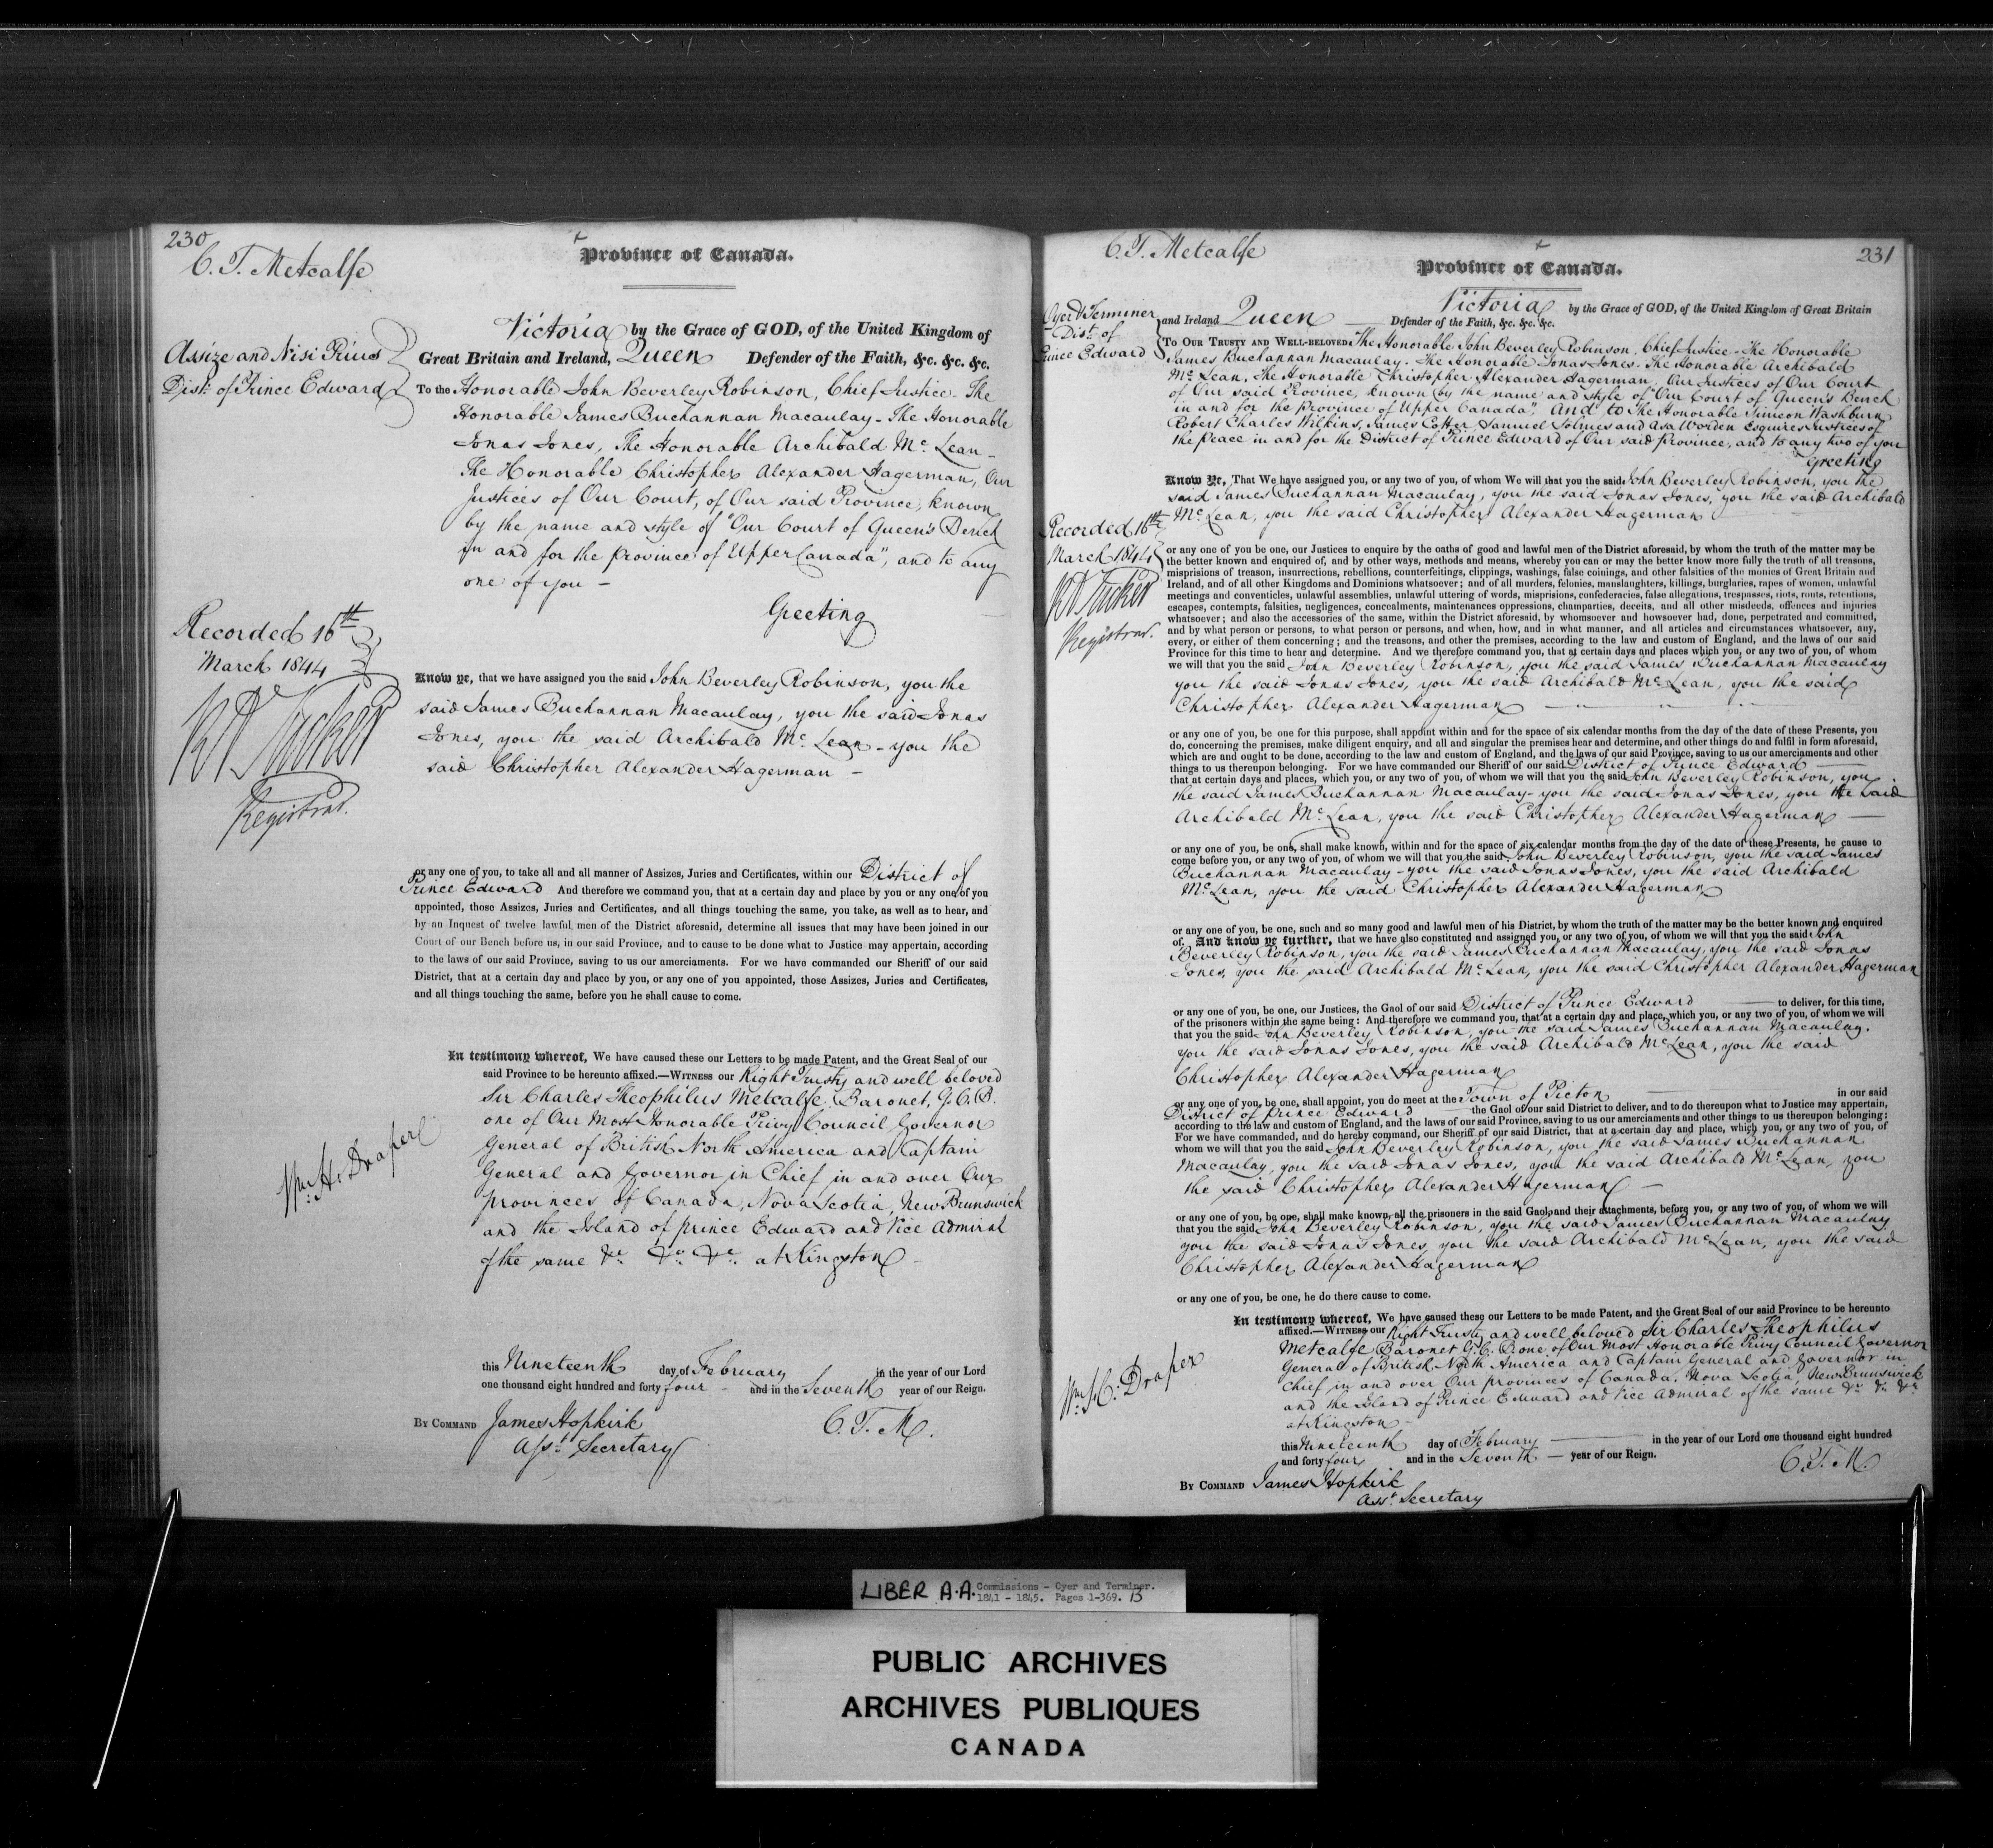 230
C. T. Metcalfe
Province of Canada.
Assize and Nisi Prius
Dist: of Prince Edward
Victoria by the Grace of GOD, of the United Kingdom of
Great Britain and Ireland, Queen Defender of the Faith, &c. &c. &c.
To the Honorable John Beverley Robinson, Chief Justice. The
Honorable James Buchannan Macaulay - The Honorable
Jonas Jones, The Honorable Archibald Mc Lean -
The Honorable Christopher Alexander Hagerman, Our
Justices of Our Court, of Our said Province, known
by the name and style of "Our Court of Queen's Bench
in and for the Province of Upper Canada", and to any
one of you -
Greeting
Recorded 16th
March 1844
RA Tucker
Registrar.
Know ye, that we have assigned you the said John Beverley Robinson, you the
said James Buchannan Macaulay, you the said Jonas
Jones, you the said Archibald Mc Lean - you the
said Christopher Alexander Hagerman -
or any one of you, to take all and all manner of Assizes, Juries and Certificates, within our District of
Prince Edward And therefore we command you, that at a certain day and place by you or any one of you
appointed, those Assizes, Juries and Certificates, and all things touching the same, you take, as well as to hear, and
by an Inquest of twelve lawful men of the District aforesaid, determine all issues that may have been joined in our
Court of our Bench before us, in our said Province, and to cause to be done what to Justice may appertain, according
to the laws of our said Province, saving to us our amerciaments. For we have commanded our Sheriff of our said
District, that at a certain day and place by you, or any one of you appointed, those Assizes, Juries and Certificates,
and all things touching the same, before you he shall cause to come.
In testimony whereof, We have caused these our Letters to be made Patent, and the Great Seal of our
said Province to be hereunto affixed.—WITNESS our Right Trusty and well beloved
Sir Charles Theophilus Metcalfe, Baronet, G.C.B.
one of Our Most Honorable Privy Council Governor
General of British North America and Captain
General and Governor in Chief in and over Our
Provinces of Canada, Nova Scotia, New Brunswick
and the Island of Prince Edward and Vice Admiral
of the same &c &c &c. at Kingston
Wm. H. Draper
this Nineteenth day of February in the year of our Lord
one thousand eight hundred and forty four - and in the Seventh year of our Reign.
BY COMMAND James Hopkirk
Asst. Secretary
C. T. M.
231
C. T. Metcalfe
Province of Canada.
Oyer & Terminer
Dist. of
Prince Edward
Victoria by the Grace of GOD, of the United Kingdom of Great Britain
and Ireland Queen Defender of the Faith, &c. &c. &c.
TO OUR TRUSTY AND WELL-BELOVED The Honorable John Beverley Robinson, Chief Justice - The Honorable
James Buchannan Macaulay. The Honorable Jonas Jones. The Honorable Archibald
Mc Lean, The Honorable Christopher Alexander Hagerman, Our Justices of Our Court
of Our said Province, known by the name and style of "Our Court of Queen's Bench
in and for the Province of Upper Canada", And to The Honorable Simeon Washburn
Robert Charles Wilkins, James Cotter, Samuel Solmes and Asa Worden Esquires Justices of
the Peace in and for the District of Prince Edward of Our said Province, and to any two of you
Greeting
Know Ye, That We have assigned you, or any two of you, of whom We will that you the said John Beverley Robinson, you the
said James Buchannan Macaulay, you the said Jonas Jones, you the said Archibald
Mc Lean, you the said Christopher Alexander Hagerman
Recorded 16th
March 1844
RA Tucker
Registrar.
or any one of you be one, our Justices to enquire by the oaths of good and lawful men of the District aforesaid, by whom the truth of the matter may be
the better known and enquired of, and by other ways, methods and means, whereby you can or may the better know more fully the truth of all treasons,
misprisions of treason, insurrections, rebellions, counterfeitings, clippings, washings, false coinings, and other falsities of the monies of Great Britain and
Ireland, and of all other Kingdoms and Dominions whatsoever; and of all murders, felonies, manslaughters, killings, burglaries, rapes of women, unlawful
meetings and conventicles, unlawful assemblies, unlawful uttering of words, misprisions, confederacies, false allegations, trespasses, riots, routs, retentions,
escapes, contempts, falsities, negligences, concealments, maintenances oppressions, champarties, deceits, and all other misdeeds, offences and injuries
whatsoever; and also the accessories of the same, within the District aforesaid, by whomsoever and howsoever had, done, perpetrated and committed,
and by what person or persons, to what person or persons, and when, how, and in what manner, and all articles and circumstances whatsoever, any,
every, or either of them concerning; and the treasons, and other the premises, according to the law and custom of England, and the laws of our said
Province for this time to hear and determine. And we therefore command you, that at certain days and places which you, or any two of you, of whom
we will that you the said John Beverley Robinson, you the said James Buchannan Macaulay
you the said Jonas Jones, you the said Archibald Mc Lean, you the said
Christopher Alexander Hagerman
or any one of you, be one for this purpose, shall appoint within and for the space of six calendar months from the day of the date of these Presents, you
do, concerning the premises, make diligent enquiry, and all and singular the premises hear and determine, and other things do and fulfil in form aforesaid,
which are and ought to be done, according to the law and custom of England, and the laws of our said Province, saving to us our amerciaments and other
things to us thereupon belonging. For we have commanded our Sheriff of our said District of Prince Edward
that at certain days and places, which you, or any two of you, of whom we will that you the said John Beverley Robinson, you
the said James Buchannan Macaulay - you the said Jonas Jones, you the said
Archibald Mc Lean, you the said Christopher Alexander Hagerman
or any one of you, be one, shall make known, within and for the space of six calendar months from the day of the date of these Presents, he cause to
come before you, or any two of you, of whom we will that you the said John Beverley Robinson, you the said James
Buchannan Macaulay - you the said Jonas Jones, you the said Archibald
Mc Lean, you the said Christopher Alexander Hagerman
or any one of you, be one, such and so many good and lawful men of his District, by whom the truth of the matter may be the better known and enquired
of. And know ye further, that we have also constituted and assigned you, or any two of you, of whom we will that you the said John
Beverley Robinson, you the said James Buchannan Macaulay, you the said Jonas
Jones, you the said Archibald Mc Lean, you the said Christopher Alexander Hagerman
or any one of you, be one, our Justices, the Gaol of our said District of Prince Edward to deliver, for this time,
of the prisoners within the same being: And therefore we command you, that at a certain day and place, which you, or any two of you, of whom we will
that you the said John Beverley Robinson, you the said James Buchannan Macaulay.
you the said Jonas Jones, you the said Archibald Mc Lean, you the said
Christopher Alexander Hagerman
or any one of you, be one, shall appoint, you do meet at the Town of Picton in our said
District of Prince Edward the Gaol of our said District to deliver, and to do thereupon what to Justice may appertain,
according to the law and custom of England, and the laws of our said Province, saving to us our amerciaments and other things to us thereupon belonging:
For we have commanded, and do hereby command, our Sheriff of our said District, that at a certain day and place, which you, or any two of you, of
whom we will that you the said John Beverley Robinson, you the said James Buchannan
Macaulay, you the said Jonas Jones, you the said Archibald Mc Lean, you
the said Christopher Alexander Hagerman -
or any one of you, be one, shall make known, all the prisoners in the said Gaol, and their attachments, before you, or any two of you, of whom we will
that you the said John Beverley Robinson, you the said James Buchannan Macaulay
you the said Jonas Jones, you the said Archibald Mc Lean, you the said
Christopher Alexander Hagerman
or any one of you, be one, he do there cause to come.
In testimony whereof, We have caused these our Letters to be made Patent, and the Great Seal of our said Province to be hereunto
affixed.—WITNESS our Right Trusty and well beloved Sir Charles Theophilus
Metcalfe Baronet G.C.B. one of Our Most Honorable Privy Council Governor
General of British North America and Captain General and Governor in
Chief in and over Our Provinces of Canada, Nova Scotia, New Brunswick
and the Island of Prince Edward and Vice Admiral of the same &c &c &c
at Kingston -
Wm. H. Draper
this Nineteenth day of February in the year of our Lord one thousand eight hundred
and forty four and in the Seventh year of our Reign.
C. T. M.
BY COMMAND James Hopkirk
Asst. Secretary
LIBER A.A. Commissions - Oyer and Terminer.
1841 - 1845. Pages 1-369. 13
PUBLIC ARCHIVES
ARCHIVES PUBLIQUES
CANADA